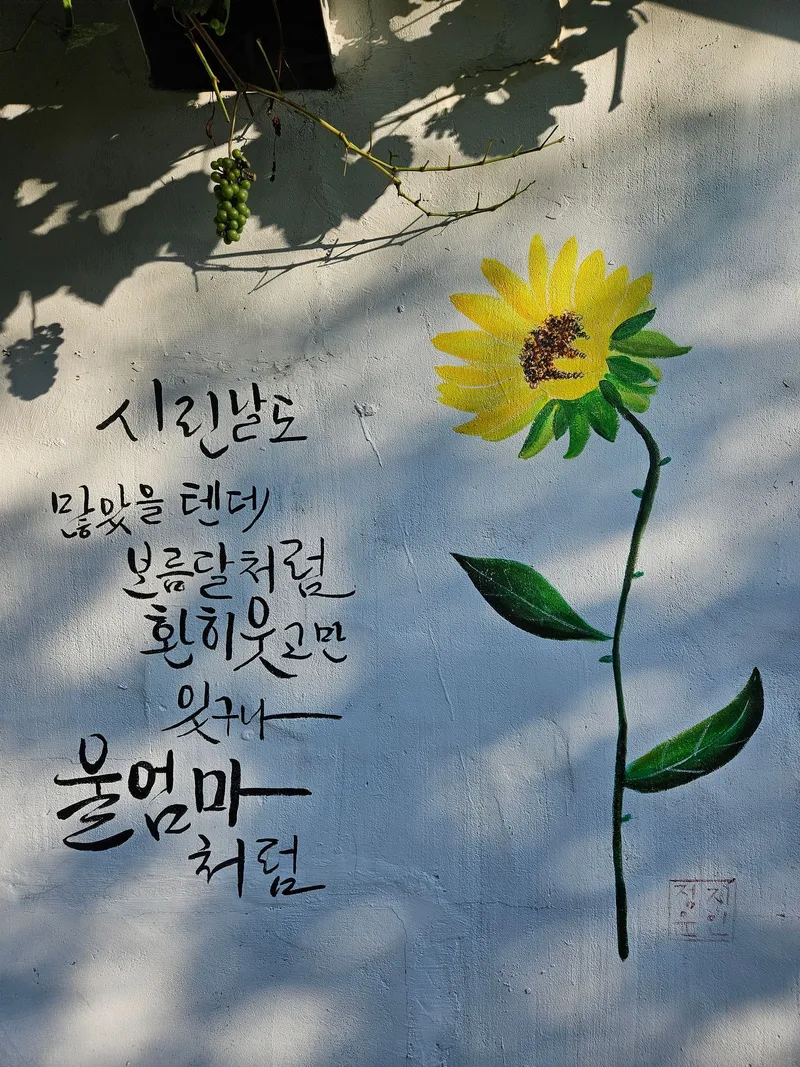 시린날도
많았을 텐데
보름달처럼
환히웃고만
잇구나
울엄마
처럼